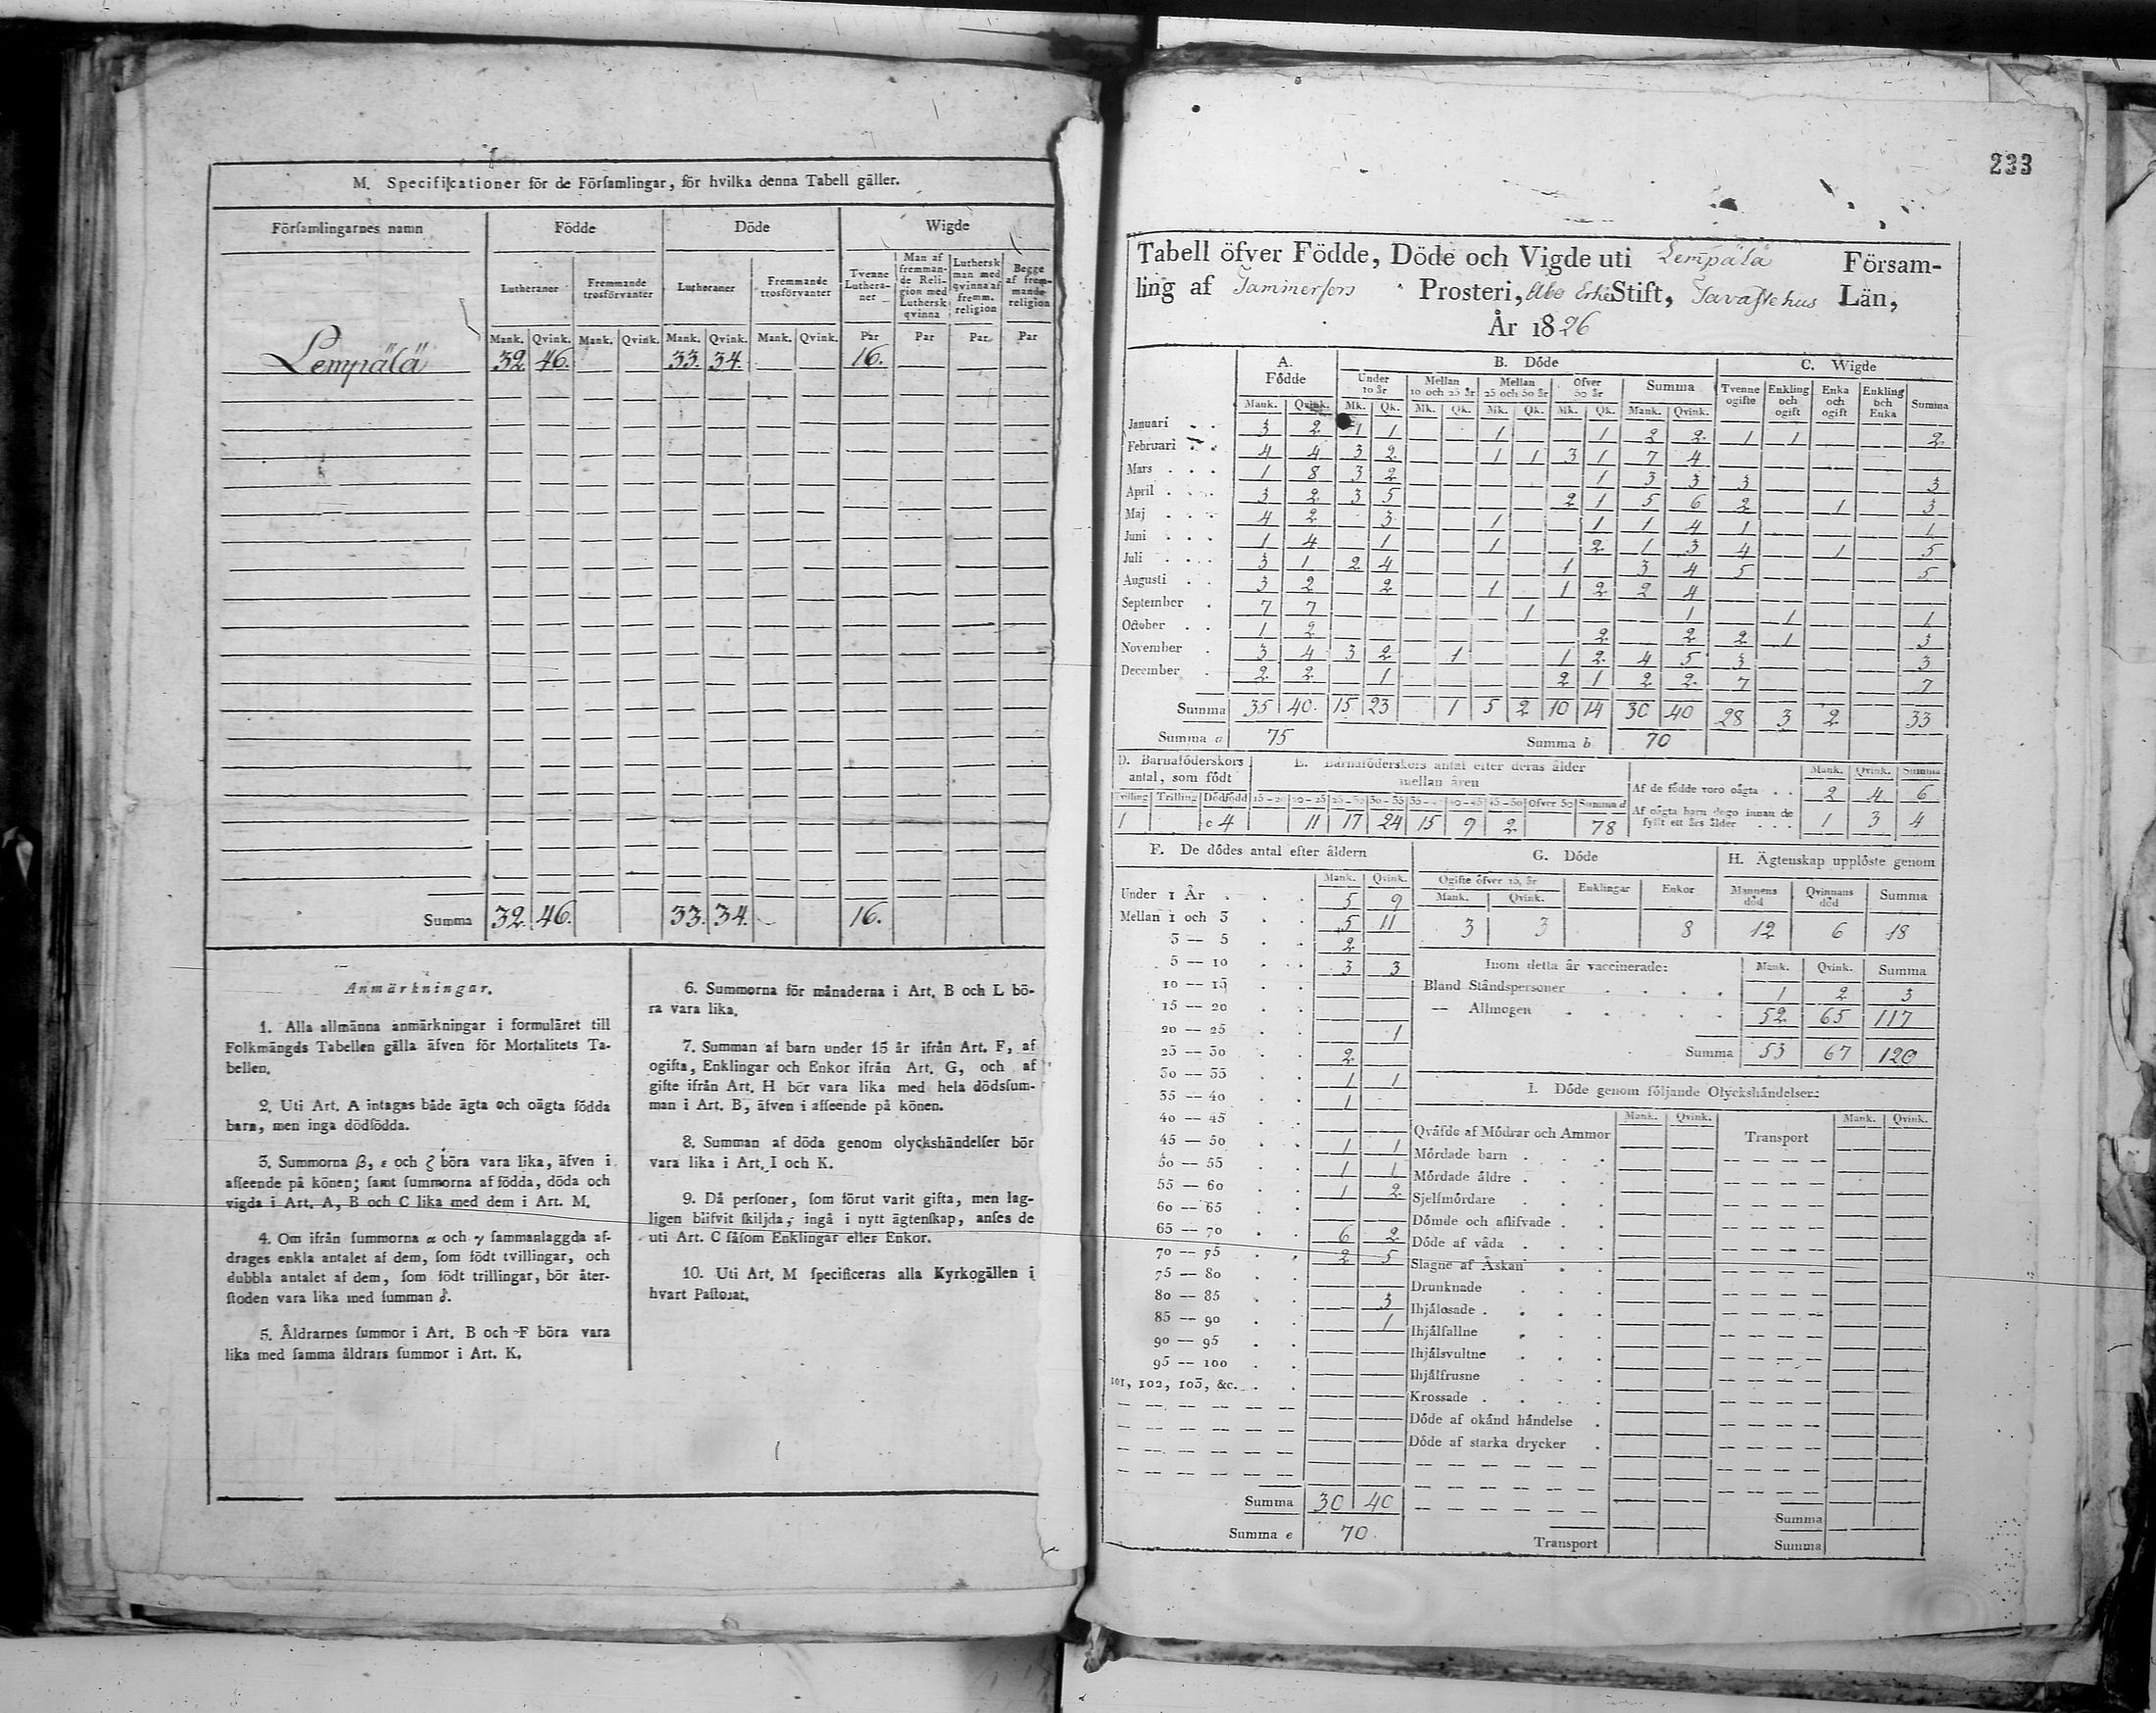 M. Specificationer för de Förſamlingar, för hvilka denna Tabell gäller.
Förſamlingarnes namn Födde Döde Wigde
Lutheraner Fremmande trosförvanter Lutheraner Fremmande trosförvanter Tvenne Lutheraner Man af fremmande Religion med Luthersk qvinna Luthersk man med qvinna af fremm. religion Begge af fremmande religion
Mank. Qvink. Mank. Qvink. Mank. Qvink. Mank. Qvink. Par Par Par Par
Lempälä 32. 46. 33. 34. 16.
Summa 32. 46. 33. 34. 16.
Anmärkningar.
1. Alla allmänna anmärkningar i formuläret till
Folkmängds Tabellen gälla äfven för Mortalitets Ta-
bellen.
2. Uti Art. A intagas både ägta och oägta födda
barn, men inga dödfödda.
3. Summorna β, ε och ζ böra vara lika, äfven i
affeende på könen; ſamt ſummorna af födda, döda och
vigda i Art. A, B och C lika med dem i Art. M.
4. Om ifrån ſummorna α och γ ſammanlaggda af-
drages enkla antalet af dem, ſom födt tvillingar, och
dubbla antalet af dem, ſom födt trillingar, bör åter-
ſtoden vara lika med ſumman δ.
5. Åldrarnes ſummor i Art. B och F böra vara
lika med ſamma åldrars ſummor i Art. K.
6. Summorna för månaderna i Art. B och L bö-
ra vara lika.
7. Summan af barn under 15 år ifrån Art. F, af
ogifta, Enklingar och Enkor ifrån Art. G, och af
gifte ifrån Art. H bör vara lika med hela dödsſum-
man i Art. B, äfven i affeende på könen.
8. Summan af döda genom olyckshändelſer bör
vara lika i Art. I och K.
9. Då perſoner, ſom förut varit gifta, men lag-
ligen blifvit ſkiljda, ingå i nytt ägtenſkap, anſes de
uti Art. C ſåſom Enklingar eller Enkor.
10. Uti Art. M ſpecificeras alla Kyrkogällen i
hvart Paſtorat.
233
Tabell öfver Födde, Döde och Vigde uti Lempälä Försam-
ling af Tammerfors Prosteri, Åbo Erke Stift, Tavastehus Län,
År 1826
A. Födde B. Döde C. Wigde
Under 10 år Mellan 10 och 25 år Mellan 25 och 50 år Öfver 50 år Summa Tvenne ogifte Enkling och ogift Enka och ogift Enkling och Enka Summa
Mank. Qvink. Mk. Qk. Mk. Qk. Mk. Qk. Mk. Qk. Mank. Qvink.
Januari 3 2 1 1 1 1 2 2 1 1 2
Februari 4 4 3 2 1 1 3 1 7 4
Mars 1 8 3 2 1 3 3 3 3
April 3 2 3 5 2 1 5 6 2 1 3
Maj 4 2 3 1 1 1 4 1 1
Juni 1 4 1 1 2 1 3 4 1 5
Juli 3 1 2 4 1 3 4 5 5
Augusti 3 2 2 1 1 2 2 4
September 7 7 1 1 1 1
October 1 2 2 2 2 1 3
November 3 4 3 2 1 1 2 4 5 3 3
December 2 2 1 2 1 2 2 7 7
Summa 35 40 15 23 1 5 2 10 14 30 40 28 3 2 33
Summa a 75 Summa b 70
D. Barnaföderskors antal, som födt
E. Barnaföderskors antal efter deras ålder mellan åren
Tvilling Trilling Dödfödd 15-20 20-25 25-30 30-35 35-40 40-45 45-50 Öfver 50 Summa d
1 c 4 11 17 24 15 9 2 78
Mank. Qvink. Summa
Af de födde voro oägta 2 4 6
Af oägta barn dogo innan de fyllt ett års ålder 1 3 4
F. De dödes antal efter åldern
Mank. Qvink.
Under 1 År 5 9
Mellan 1 och 3 5 11
3 — 5 2
5 — 10 3 3
10 — 15
15 — 20
20 — 25 1
25 — 30 2
30 — 35 1 1
35 — 40 1
40 — 45
45 — 50 1 1
50 — 55 1 1
55 — 60 1 2
60 — 65
65 — 70 6 2
70 — 75 2 5
75 — 80
80 — 85 3
85 — 90 1
90 — 95
95 — 100
101, 102, 103, &c.
Summa 30 40
Summa e 70.
G. Döde
Ogifte öfver 15, år Enklingar Enkor
Mank. Qvink.
3 3 8
H. Ägtenskap upplöste genom
Mannens död Qvinnans död Summa
12 6 18
Inom detta år vaccinerade: Mank. Qvink. Summa
Bland Ståndspersoner 1 2 3
— Allmogen 52 65 117
Summa 53 67 120
I. Döde genom följande Olyckshändelser:
Mank. Qvink. Mank. Qvink.
Qväfde af Mödrar och Ammor Transport
Mördade barn
Mördade äldre
Sjelfmördare
Dömde och aflifvade
Döde af våda
Slagne af Åskan
Drunknade
Ihjälosade
Ihjälfallne
Ihjälsvultne
Ihjälfrusne
Krossade
Döde af okänd händelse
Döde af starka drycker
Summa
Transport Summa